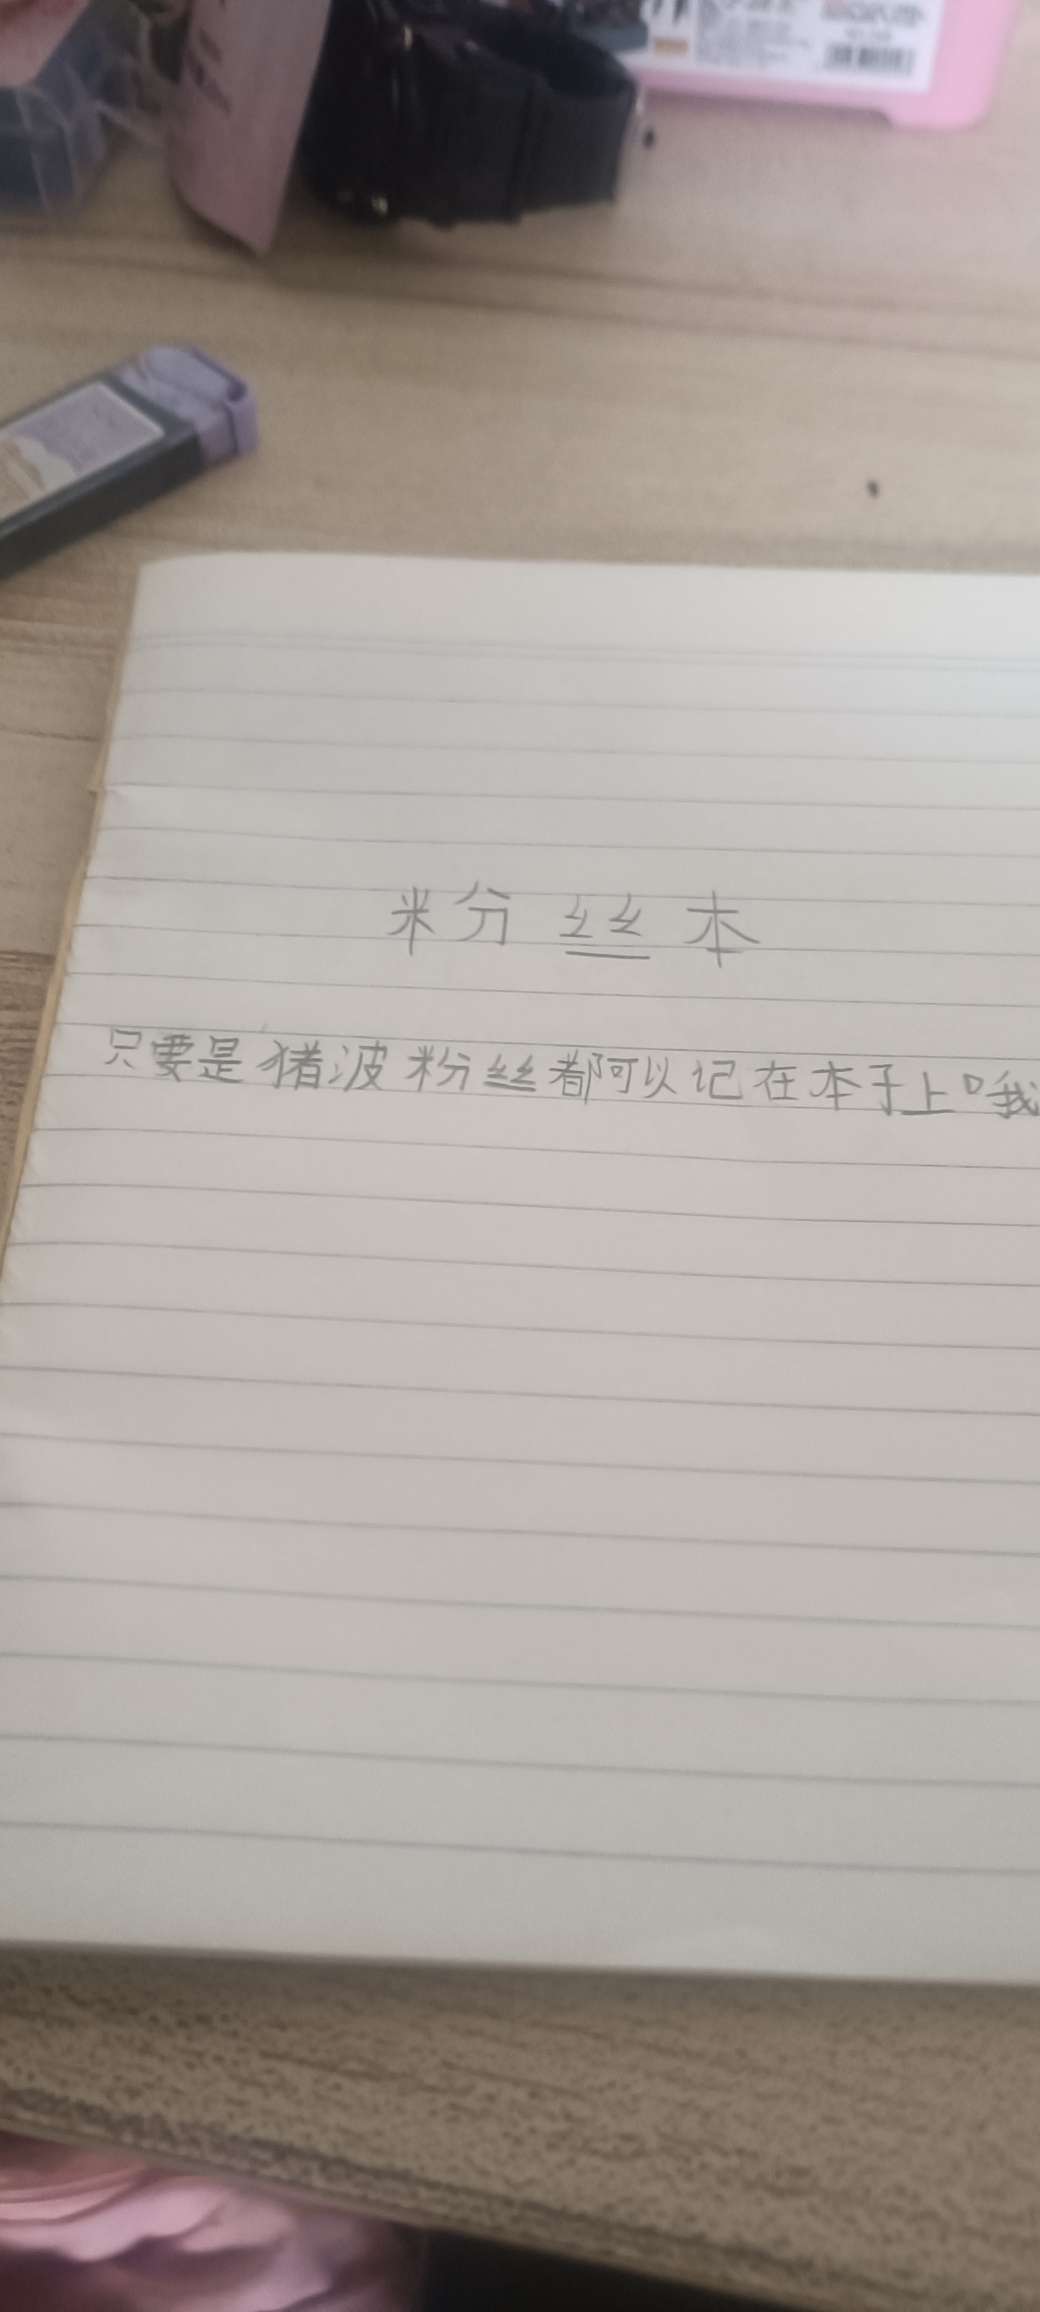 粉丝本
只要是猪波粉丝都可以记在本子上哦